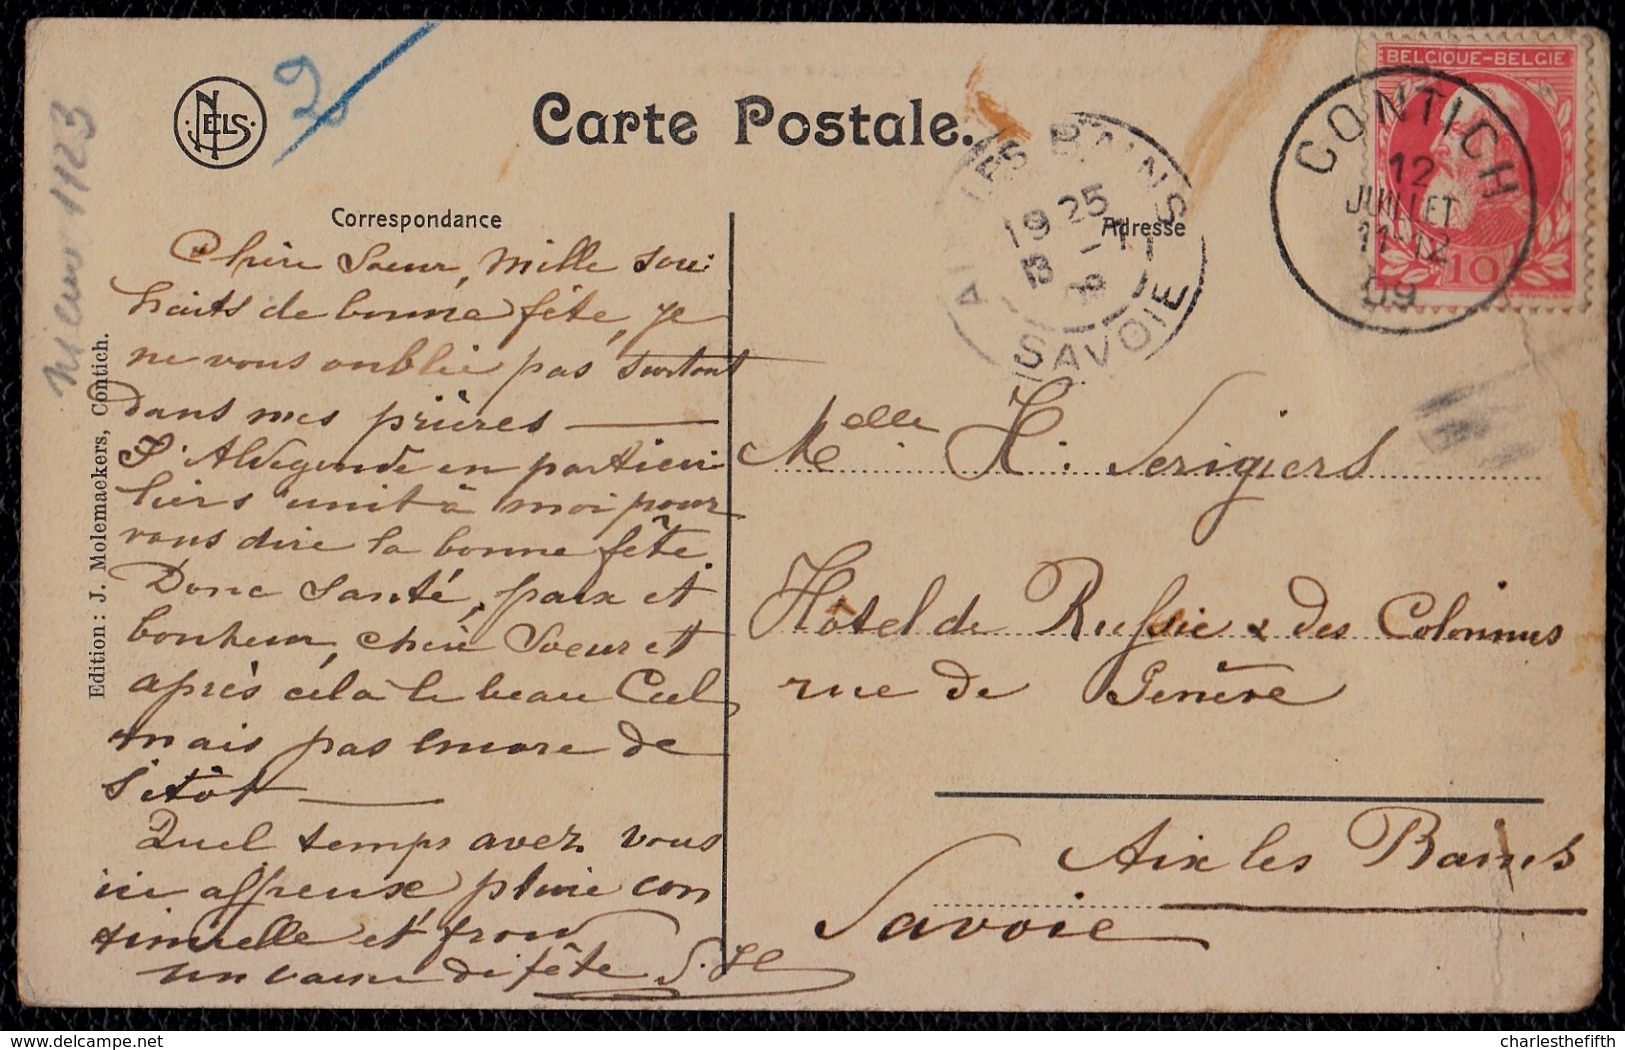 NELS
2
Carte Postale.
BELGIQUE-BELGIE
10
CONTICH
12
JUILLET
11-12
09
AIX LES BAINS
19 25
13 -7
09
SAVOIE
Correspondance
Adresse
Edition: J. Molemaekers, Contich.
Chère Soeur, mille sou-
haits de bonne fête, je
ne vous oublie pas surtout
dans mes prières —
S. Aldegonde en particu-
liers unit à moi pour
vous dire la bonne fête.
Donc santé, paix et
bonheur, chère Soeur et
après cela le beau Ciel,
mais pas encore de
sitôt —
Quel temps avez vous
ici affreuse pluie con
tinuelle et froid
un de fête S.
Melle H. Serigiers
Hôtel de Russie & des Colonnes
rue de Genève
Aix les Bains
Savoie
delcampe.net
charlesthefifth